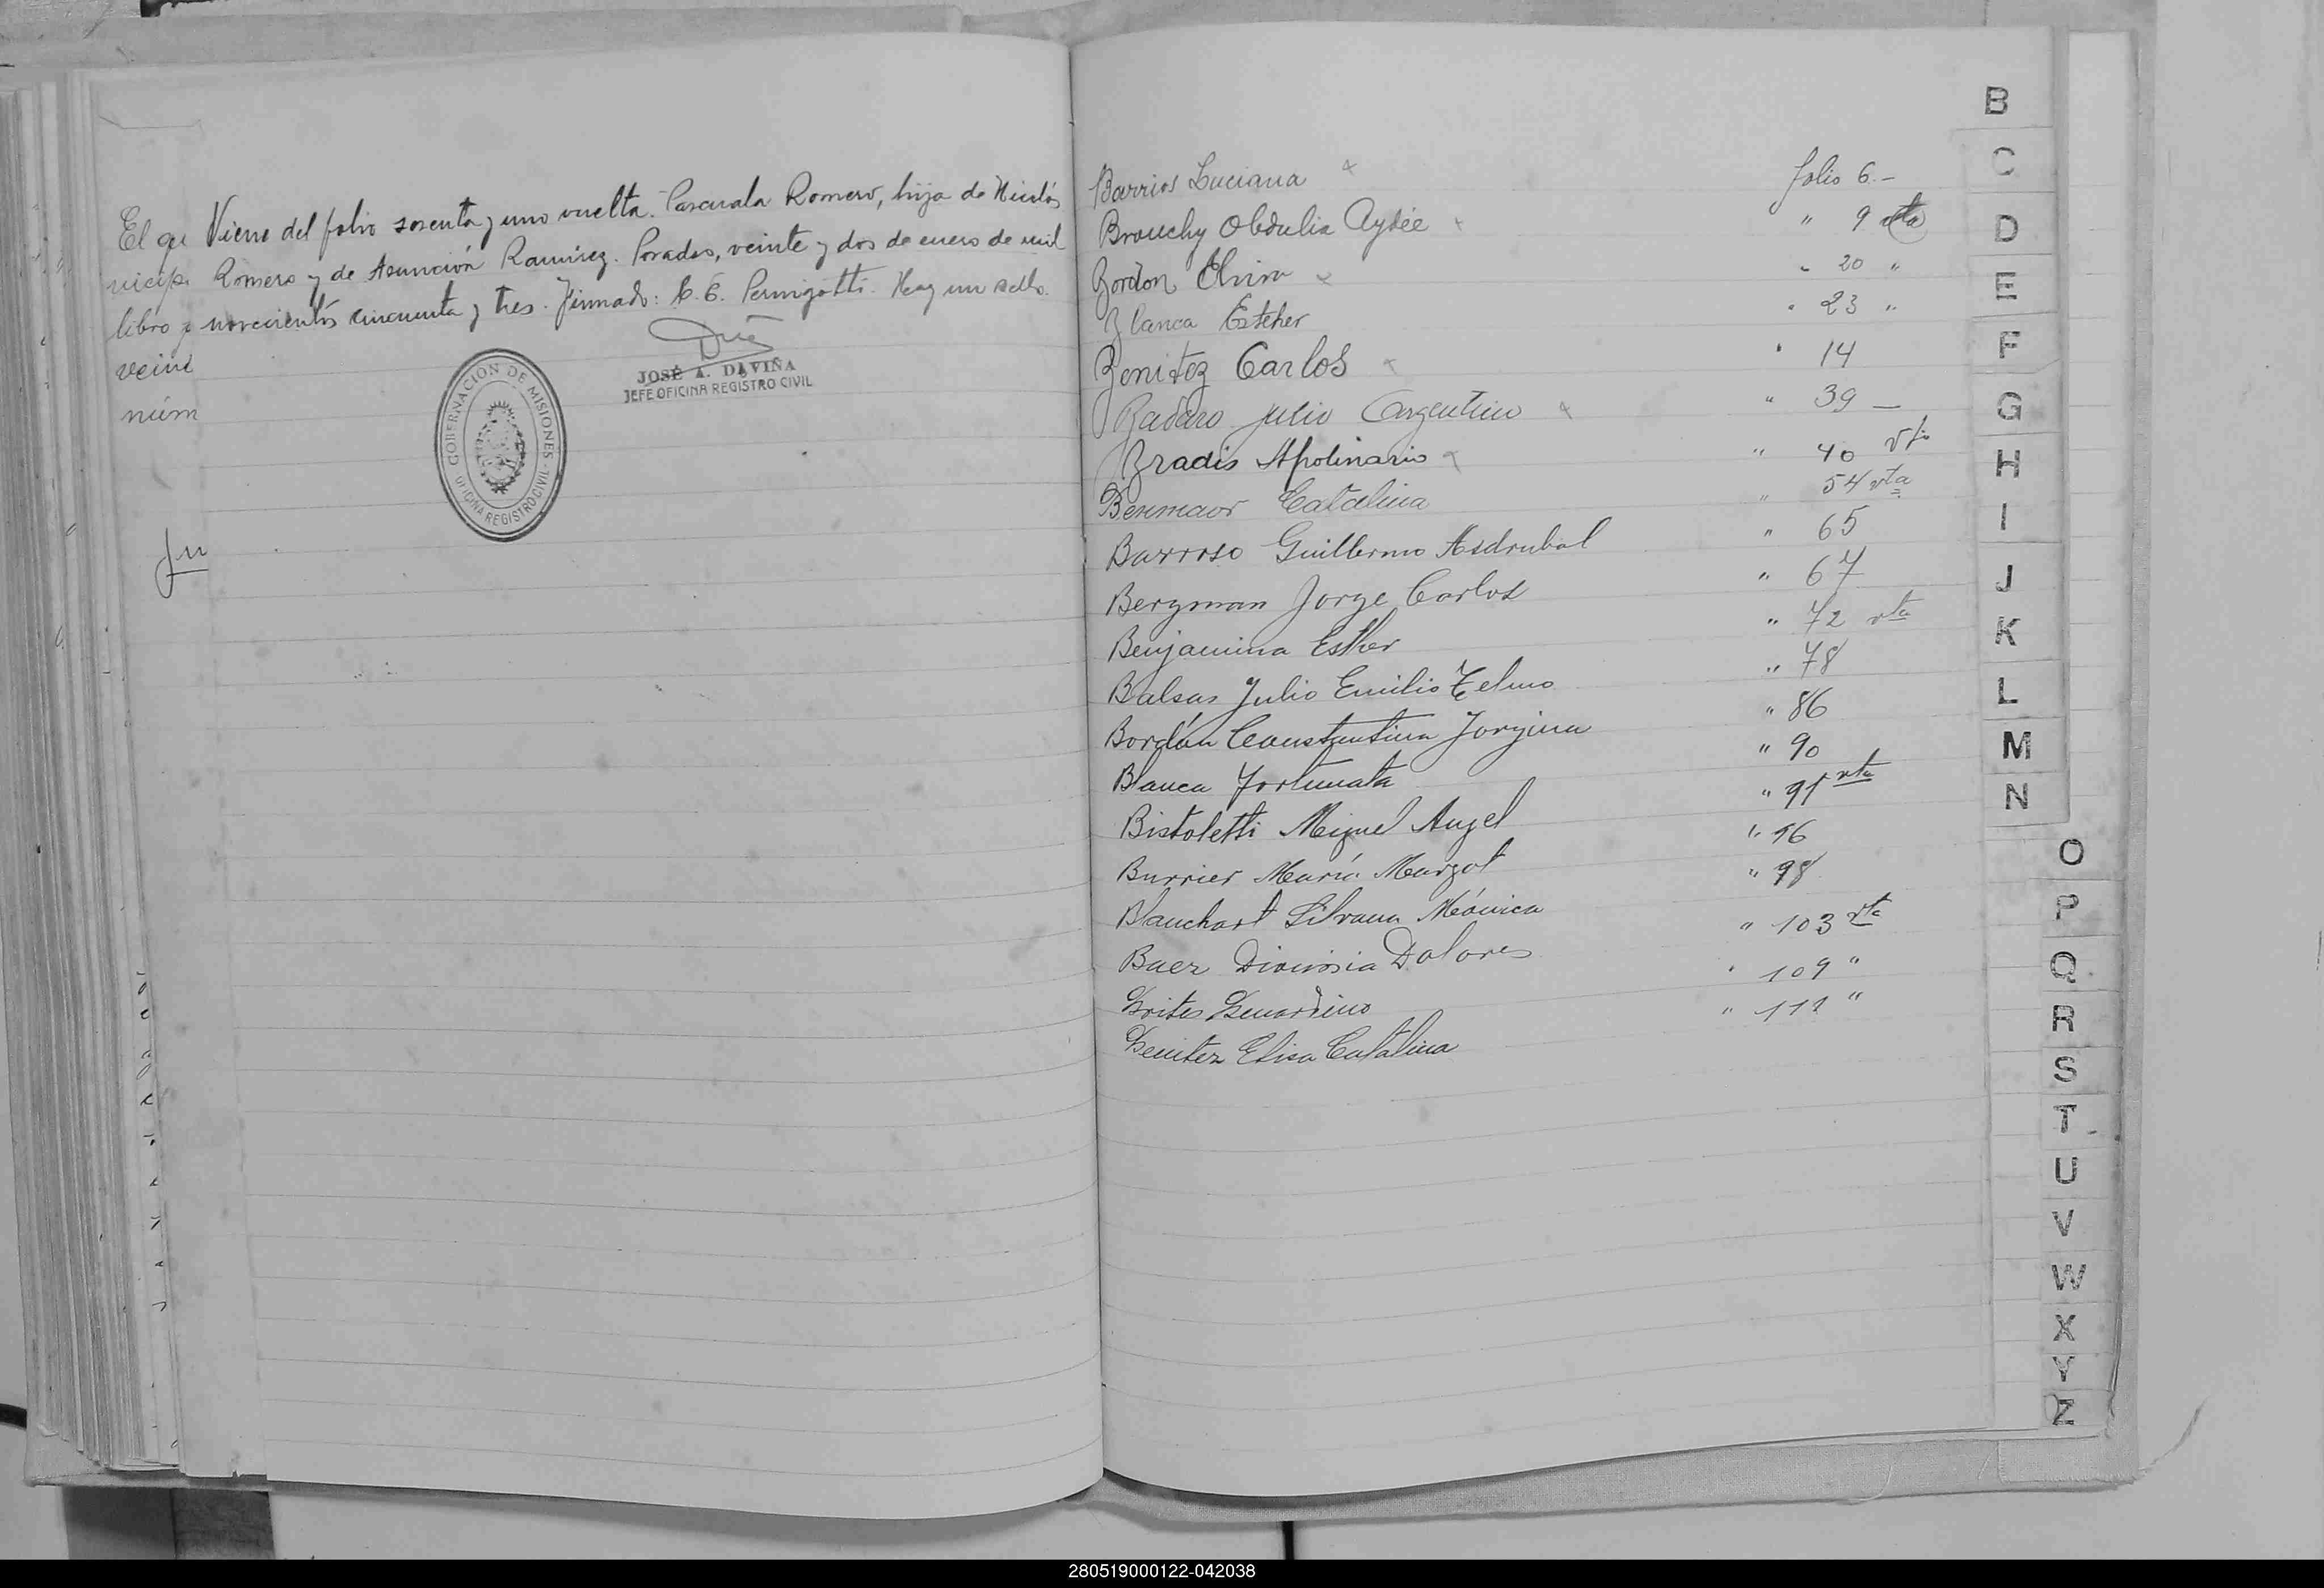 El qu
nicip
libro
veint
núm
Viene del folio sesenta y uno vuelta. Pascuala Romero, hija de Nicolás
Romero y de Asunción Ramírez. Posadas, veinte y dos de enero de mil
novecientos cincuenta y tres. Firmado: C. E. Pernigotti. Hay un sello.
JOSÉ A. DAVIÑA
JEFE OFICINA REGISTRO CIVIL
GOBERNACIÓN DE MISIONES - OFICINA REGISTRO CIVIL
Barrios Luciana folio 6.-
Brouchy Obdulia Aydée " 9 vta
Bordon Elvira " 20 "
Blanca Esther " 23 "
Benitez Carlos " 14
Badaro Julio Argentino " 39 —
Bradis Apolinario " 40 vta
Benmaor Catalina " 54 vta
Barroso Guillermo Asdrubal " 65
Bergman Jorge Carlos " 67
Benjamina Esther " 72 vta
Balsas Julio Emilio Telmo " 78
Bordón Constantina Jorgina " 86
Blanca Fortunata " 90
Bistoletti Miguel Angel " 91 vta
Burrier María Margot " 96
Blanchart Silvana Mónica " 98
Baez Dionisia Dolores " 103 vta
Brites Benardino " 109 "
Benitez Elisa Catalina " 111 "
B
C
D
E
F
G
H
I
J
K
L
M
N
O
P
Q
R
S
T
U
V
W
X
Y
Z
280519000122-042038